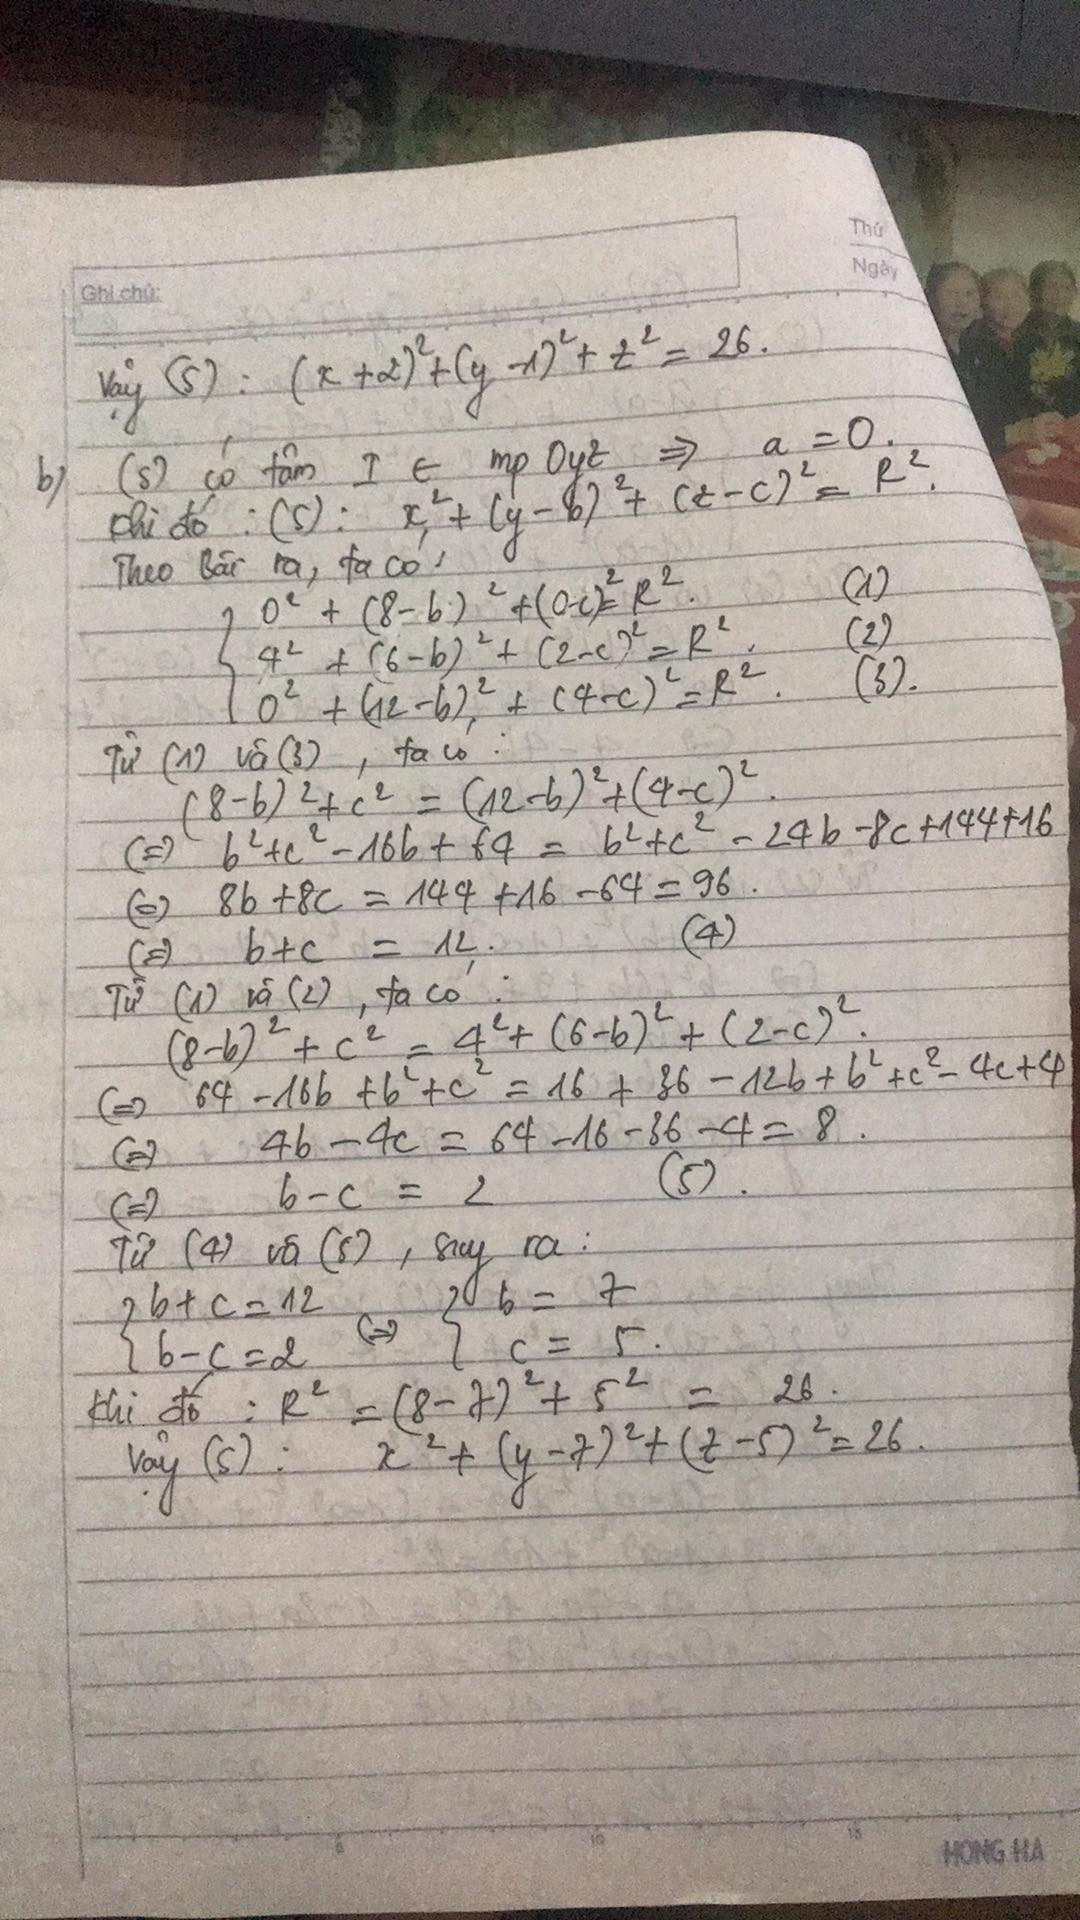 Thứ
Ngày
Ghi chú:
Vậy (S): (x + 2)² + (y - 1)² + z² = 26.
b) (S) có tâm I ∈ mp Oyz ⇒ a = 0.
Khi đó : (S): x² + (y - b)² + (z - c)² = R².
Theo bài ra, ta có:
0² + (8 - b)² + (0-c)² = R². (1)
4² + (6-b)² + (2-c)² = R². (2)
0² + (12-b)² + (4-c)² = R². (3).
Từ (1) và (3), ta có:
(8-b)² + c² = (12-b)² + (4-c)².
(=) b² + c² - 16b + 64 = b² + c² - 24b - 8c + 144 + 16
(=) 8b + 8c = 144 + 16 - 64 = 96.
(=) b + c = 12. (4)
Từ (1) và (2), ta có:
(8-b)² + c² = 4² + (6-b)² + (2-c)².
(=) 64 - 16b + b² + c² = 16 + 36 - 12b + b² + c² - 4c + 4
(=) 4b - 4c = 64 - 16 - 36 - 4 = 8.
(=) b - c = 2 (5).
Từ (4) và (5), suy ra:
{ b + c = 12 (=) { b = 7
b - c = 2 c = 5.
Khi đó : R² = (8-7)² + 5² = 26.
Vậy (S): x² + (y - 7)² + (z - 5)² = 26.
5 10 15
HONG HA